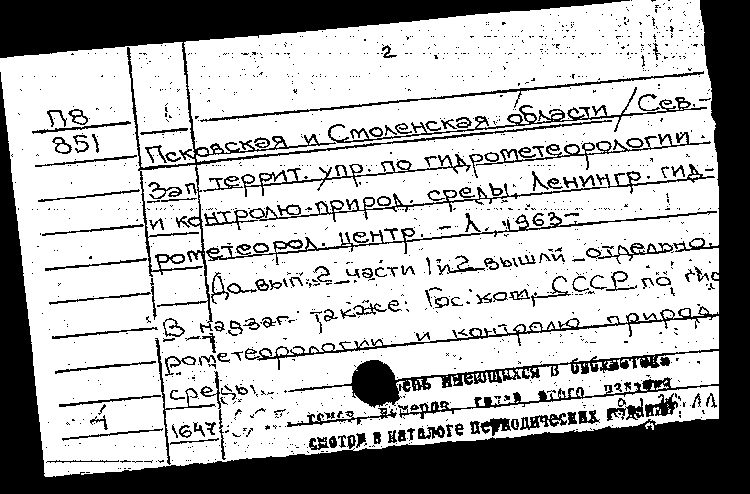 2
П8
851
Псковская и Смоленская области / Сев.-
Зап террит. упр. по гидрометеорологии
и контролю природ. среды, Ленингр. гид-
рометеорол. центр. - Л., 1963-
До вып. 2 части 1 и 2 вышли отдельно.
В надзаг. также: Гос. ком. СССР по гид
рометеорологии и контролю природ
среды
имеющихся в библиотеке
томов, номеров, годов этого издания
смотри в каталоге периодических изданий
4
1647